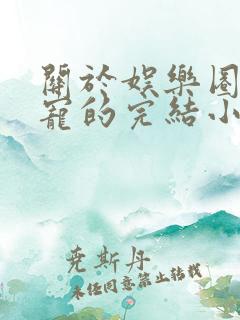 關於娛樂圈
寵的完結小
堯斯丹
未經同意禁止轉載